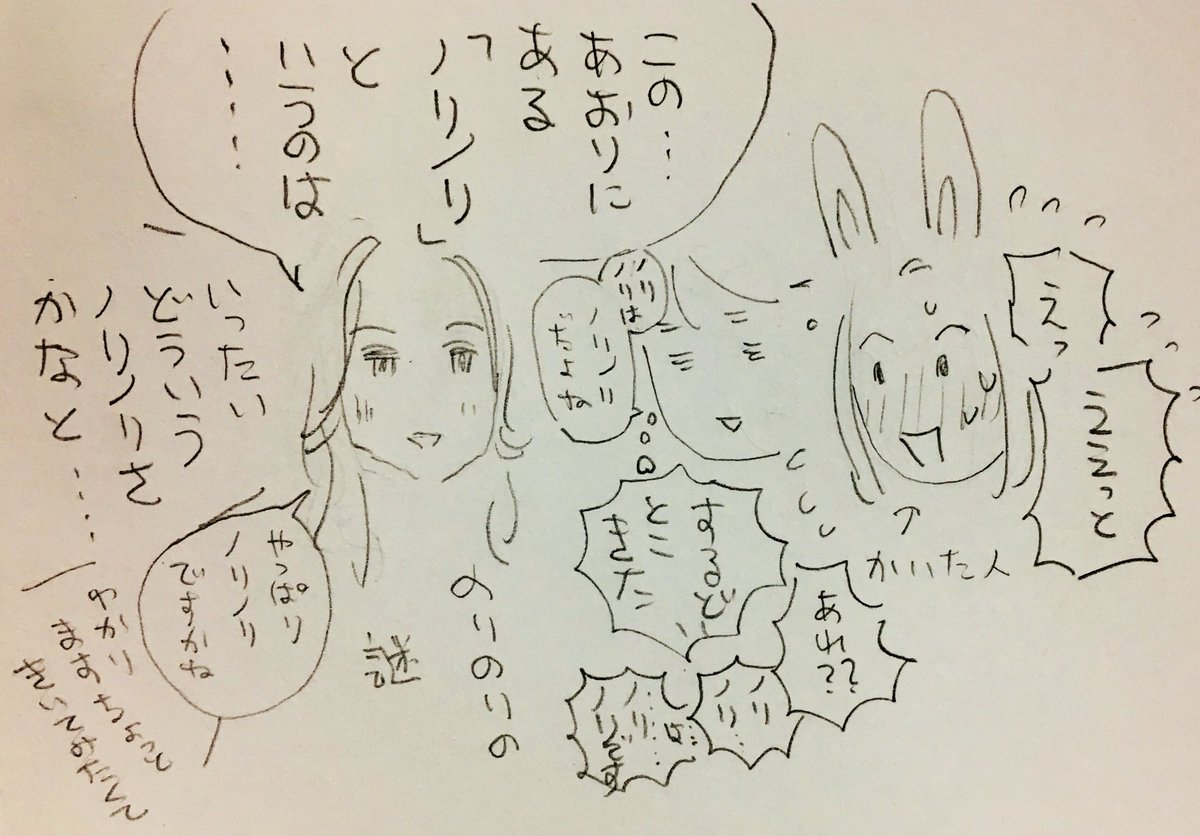 この…
あおりに
ある
「ノリノリ」
と
いうのは
……
いったい
どういう
ノリノリさ
かなと…
えっ
えええっと
かいた人
あれ??
するどい
とこ
きた
ノリノリは
ノリノリ
だよね
ノリノリ…
ノリノリは…
ノリノリです
やっぱり
ノリノリ
ですかね
のりのりの
謎
わかり
ますちょっと